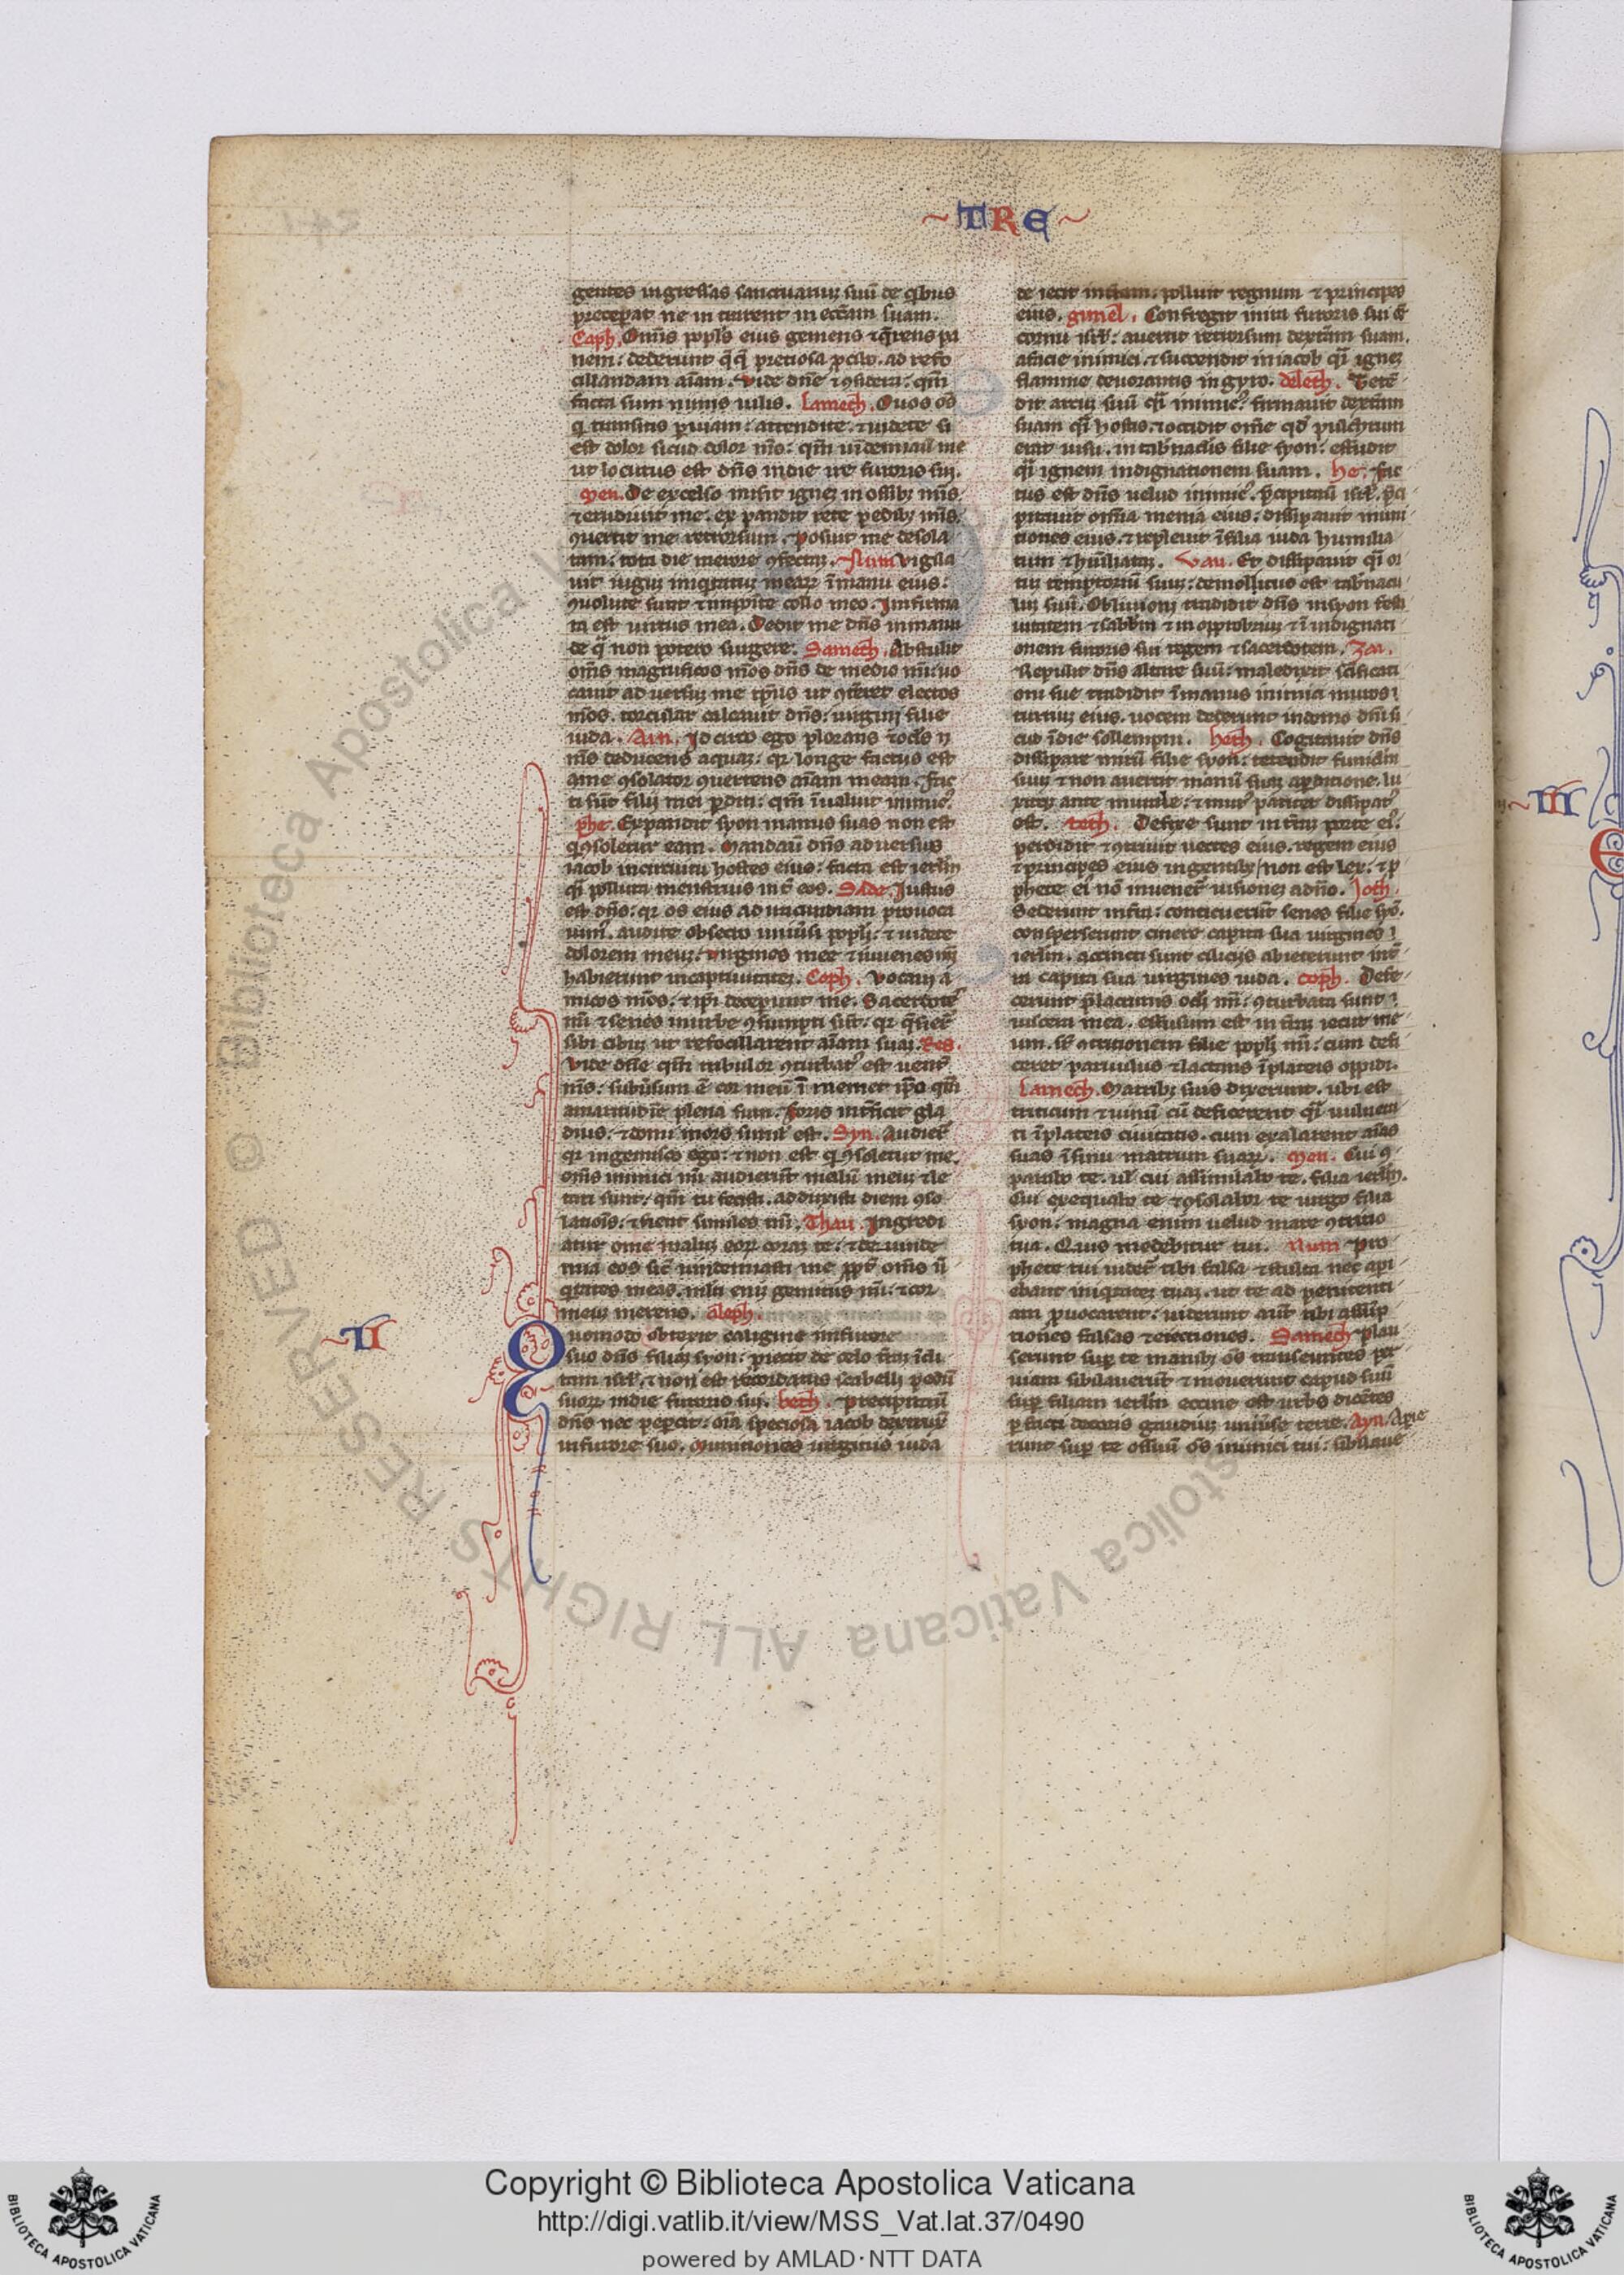 TRE
gentes ingressas sanctuariuȝ suũ de q̃bus
preceperat ne intrarent in ecctam suam.
Caph. Omĩs popls eius gemens ⁊ q̃rens pa
nem: dederunt q̃q̃ preciosa ꝓcibo. ad refo
cillandam aĩam. vide dñe ⁊ ꝯsidera: qm̃
facta sum nimis uilis. Lamech. O uos oẽs
q transitis ꝑuiam: attendite. ⁊ uidete si
est dolor sicud dolor mẽs: qm̃ uĩdemiauit me
ut locutus est dñs indie ire furoris sui.
Men. De excelso misit igneȝ in ossibȝ mẽs
⁊ erudiuit me. expandit rete pedibȝ mẽs.
ꝯuertit me retrorsum. posuit me desola
tam: tota die merore ꝯfectaȝ. Nun vigila
uit iuguȝ iniquitatuȝ mearꝝ ĩmanu eius:
ꝯuolute sunt ⁊ imposite collo meo. Infirma
ta est uirtus mea. Dedit me dñs inmanu
de q̃ non potero surgere. Samech. Abstulit
oẽs magnificos mẽos dñs de medio mĩ: uo
cauit aduersuȝ me tp̃us ut ꝯtẽret electos
mẽos. torcular calcauit dñs: uirgini filie
iuda. Ain. Idcirco ego plorans ⁊ oclꝰs
mẽs deducens aquaȝ: qꝛ longe factus est
ame ꝯsolator ꝯuertens aĩam meam. fac
ti sũt filii mei ꝑditi: qm̃ ĩualuit inimicꝰ.
phe. Expandit syon manus suas non est
q̃ ꝯsoletur eam. Mandauit dñs aduersus
iacob incircuitu hostes eius: facta est ierlm̃
q̃i polluta menstruis int̃ eos. Sade. Iustus
est dñs: qꝛ os eius ad iracundiam prouoca
ui. audite obsecro uniuersi popli: ⁊ uidete
dolorem meuȝ: uirgines mee ⁊ iuuenes mĩ
habierunt incaptiuitateȝ. Coph. Vocaui a
micos mẽos: ⁊ ip̃i deceperunt me. Sacerdotes
mĩ ⁊ senes inurbe ꝯsumpti sũt: qꝛ q̃sierũt
sibi cibuȝ ut refocillarent aĩam suaȝ. Res.
Vide dñe qm̃ tribulor ꝯturbatꝰ est uenter
mẽs: subuersum ẽ cor meũ ĩ memet ip̃o qm̃
amaritudine plena sum. foris int̃ficit gla
dius: ⁊ domi mors similis est. Syn. Audierũt
qꝛ ingemisco ego: ⁊ non est q̃ ꝯsoletur me.
oẽs inimici mĩ audierũt malũ meuȝ ⁊ le
tati sunt: qm̃ tu fecisti. adduxisti diem ꝯso
lationis: ⁊ fient similes mĩ. Thau. Ingredi
atur om̃e maluȝ eorꝝ coraȝ te: ⁊ deuinde
mia eos sic uindemiasti me ꝓpt̃ oẽs ini
quitates meas. multi eniȝ gemitus mĩ: ⁊ cor
meuȝ merens. aleph.
II
Quomodo obtexit caligine infurore
suo dñs filiaȝ syon: proiecit de celo t̃raȝ ĩcli
tam isrl̃. ⁊ non est recordatus scabelli pedũ
suorꝝ indie furoris sui. beth. precipitauit
dñs nec pepercit: oĩa speciosa iacob destruxit
infurore suo. munitiones uirginis iuda
de iecit interram: polluit regnum ⁊ principes
eius. gimel. Confregit inira furoris sui õe
cornu isrl̃: auertit retrorsum dexterã suam.
afacie inimici. ⁊ succendit iniacob q̃i igneȝ
flamme deuorantis ingyro. deleth. Teten
dit arcuȝ suũ q̃i inimicꝰ: firmauit dextram
suam q̃i hostis. ⁊ occidit om̃e qd̃ pulchrum
erat uisu. in tabnaclis filie syon: effudit
q̃i ignem indignationem suam. he. fac
tus est dñs uelud inimicꝰ. p̃cipitauit isrl̃. p̃ci
pitauit om̃ia menia eius: dissipauit muni
tiones eius. ⁊ repleuit ĩ filia iuda humilia
tum ⁊ humiliataȝ. Vau. Et dissipauit q̃i or
tuȝ temptoriũ suuȝ: demollitus est tab̃nacu
luȝ suũ. Obliuioni tradidit dñs insyon festi
uitatem ⁊ sabb̃m ⁊ in opprobriuȝ ⁊ ĩ indignati
onem furoris sui regem ⁊ sacerdotem. Zai.
Repulit dñs altare suũ: maledixit sc̃ificati
oni sue tradidit ĩ manus inimici muros
turriuȝ eius. uocem dederunt indomo dñi si
cud ĩ die sollempni. heth. Cogitauit dñs
dissipare murũ filie syon: tetendit funiclm̃
suuȝ ⁊ non auertit manũ suaȝ aꝑditione. lu
xitqȝ ante murale: ⁊ murꝰ pariter dissipatꝰ
est. teth. Defixe sunt in t̃ra porte eiꝰ:
perdidit ⁊ ꝯtriuit uectes eius. regem eius
⁊ principes eius ingentibȝ/ non est lex: ⁊ ꝓ
phete eiꝰ nõ inuenerũt uisioneȝ adño. Joth.
Sederunt int̃ra: conticuerũt senes filie syõ.
consperserunt cinere capita sua uirgines
ierlm̃. accincti sunt ciliciis abiecerunt int̃
ra capita sua uirgines iuda. coph. Defe
cerunt p̃lacrimis ocli mĩ: ꝯturbata sunt
uiscera mea. effusum est in t̃ra iecur me
um. sr̃ ꝯtritionem filie popli mĩ: cum defi
ceret paruulus ⁊ lactens ĩ plateis oppidi.
Lamech. Matribȝ suis dixerunt. ubi est
triticum ⁊ uinũ cũ deficerent q̃i uulnera
ti ĩ plateis ciuitatis. cum exalarent aĩas
suas ĩ sinu matrum suarꝝ. Men. Cui ꝯ
parabo te. ul̃ cui assimilabo te. filia ierlm̃.
Cui exequabo te ⁊ ꝯsolabor te uirgo filia
syon: magna enim uelud mare ꝯtritio
tua. Quis medebitur tui. Num pro
phete tui uiderũt tibi falsa ⁊ stulta nec api
ebant iniquitateȝ tuaȝ. ut te ad penitenti
am ꝓuocarent: uiderunt aũt tibi assũp
tiones falsas ⁊ eiectiones. Samech plau
serunt suꝑ te manibȝ oẽs transeuntes per
uiam sibilauerũt ⁊ mouerunt capud suũ
suꝑ filiam ierlm̃ eccine est urbs dicẽtes
ꝑfecti decoris gaudiuȝ uniuerse terre. Ayn. Aperu
runt suꝑ te os suũ oẽs inimici tui: sibilaue
III
Copyright © Biblioteca Apostolica Vaticana
http://digi.vatlib.it/view/MSS_Vat.lat.37/0490
powered by AMLAD·NTT DATA